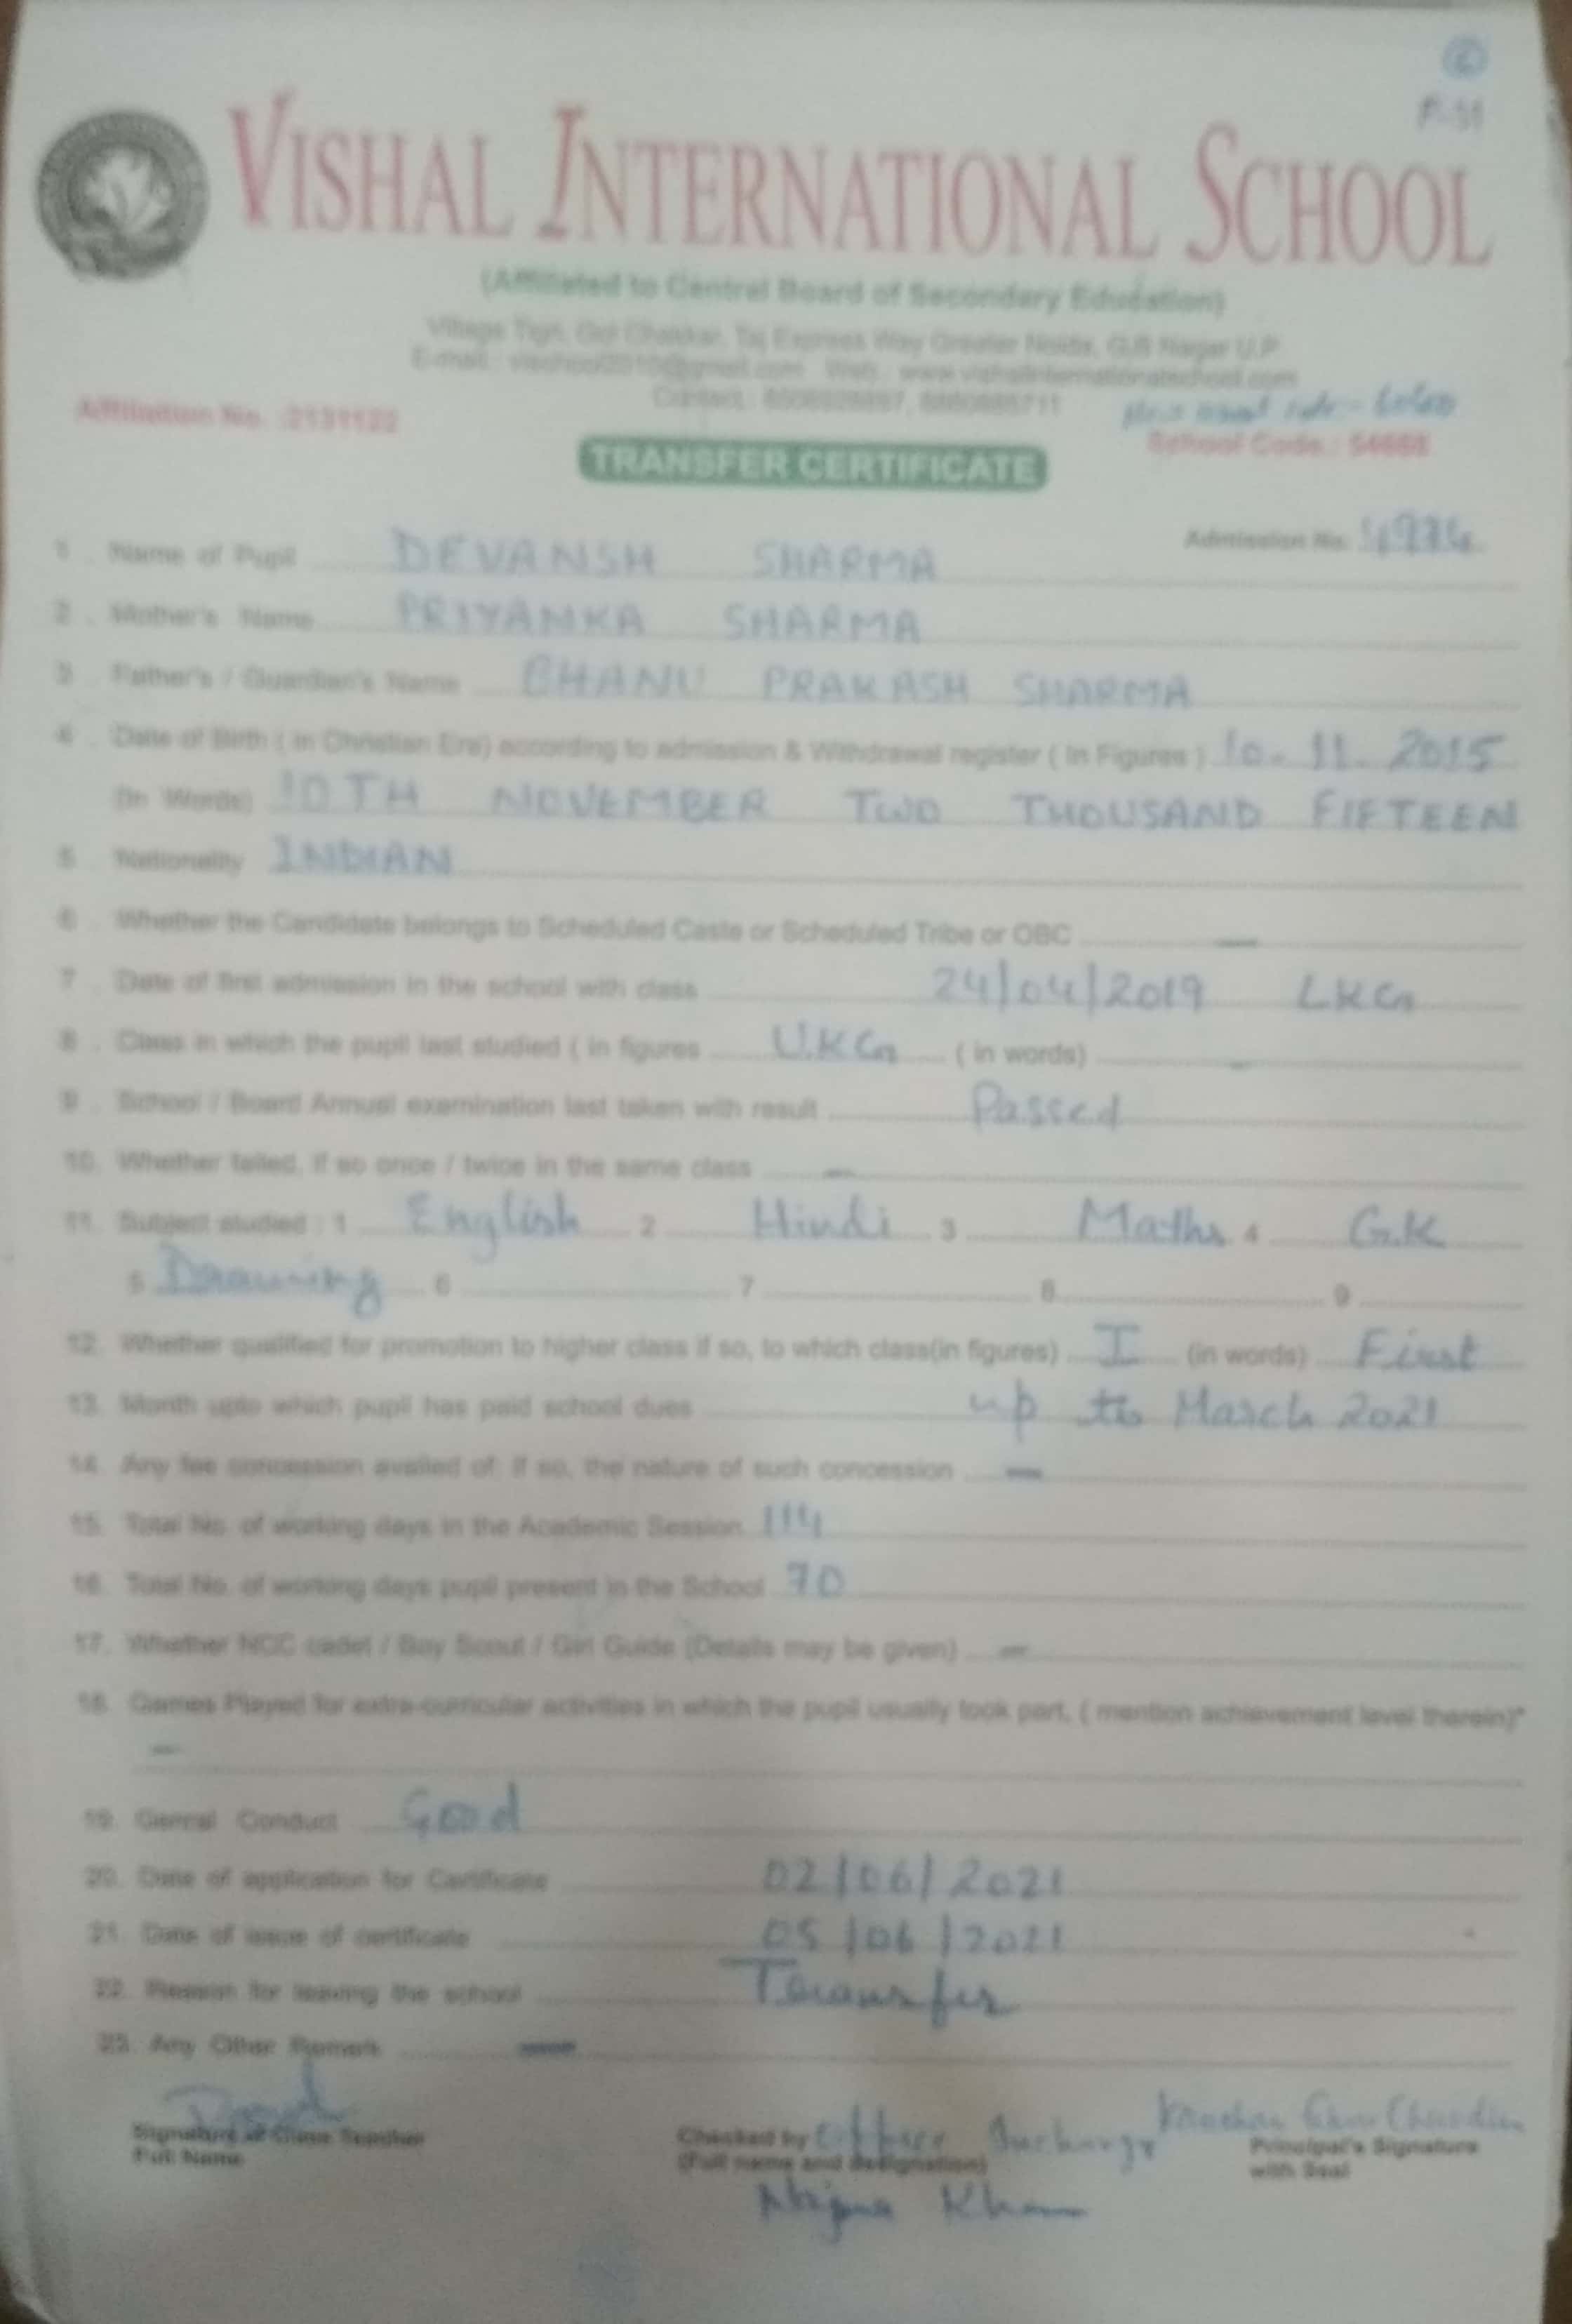 VISHAL INTERNATIONAL SCHOOL
(Affiliated to Central Board of Secondary Education)
Village Tigri, Gol Chakkar, Taj Express Way Greater Noida, G.B Nagar U.P
E-mail: Web.: www.vishalinternationalschool.com
Contact.:
Affiliation No. :2131122
School Code.:
TRANSFER CERTIFICATE
Admission No.
1. Name of Pupil DEVANSH SHARMA
2. Mother's Name PRIYANKA SHARMA
3. Father's / Guardian's Name BHANU PRAKASH SHARMA
4. Date of Birth ( in Christian Era) according to admission & Withdrawal register ( In Figures ) 10-11-2015
(In Words) 10TH NOVEMBER TWO THOUSAND FIFTEEN
5. Nationality INDIAN
6. Whether the Candidate belongs to Scheduled Caste or Scheduled Tribe or OBC —
7. Date of first admission in the school with class 24/04/2019 LKG
8. Class in which the pupil last studied ( in figures U.KG ( in words) —
9. School / Board Annual examination last taken with result Passed
10. Whether failed, if so once / twice in the same class —
11. Subject studied : 1 English 2 Hindi 3 Maths 4 G.K
5 Drawing 6 7 8 9
12. Whether qualified for promotion to higher class if so, to which class(in figures) I (in words) First
13. Month upto which pupil has paid school dues up to March 2021
14. Any fee concession availed of: if so, the nature of such concession —
15. Total No. of working days in the Academic Session 114
16. Total No. of working days pupil present in the School 70
17. Whether NCC cadet / Boy Scout / Girl Guide (Details may be given) —
18. Games Played for extra-curricular activities in which the pupil usually took part, ( mention achievement level therein)*
—
19. Genral Conduct Good
20. Date of application for Certificate 02/06/2021
21. Date of issue of certificate 05/06/2021
22. Reason for leaving the school Transfer
23. Any Other Remark —
Signature of Class Teacher
Full Name
Checked by Officer Incharge
(Full name and designation)
Khan
Principal's Signature
with Seal